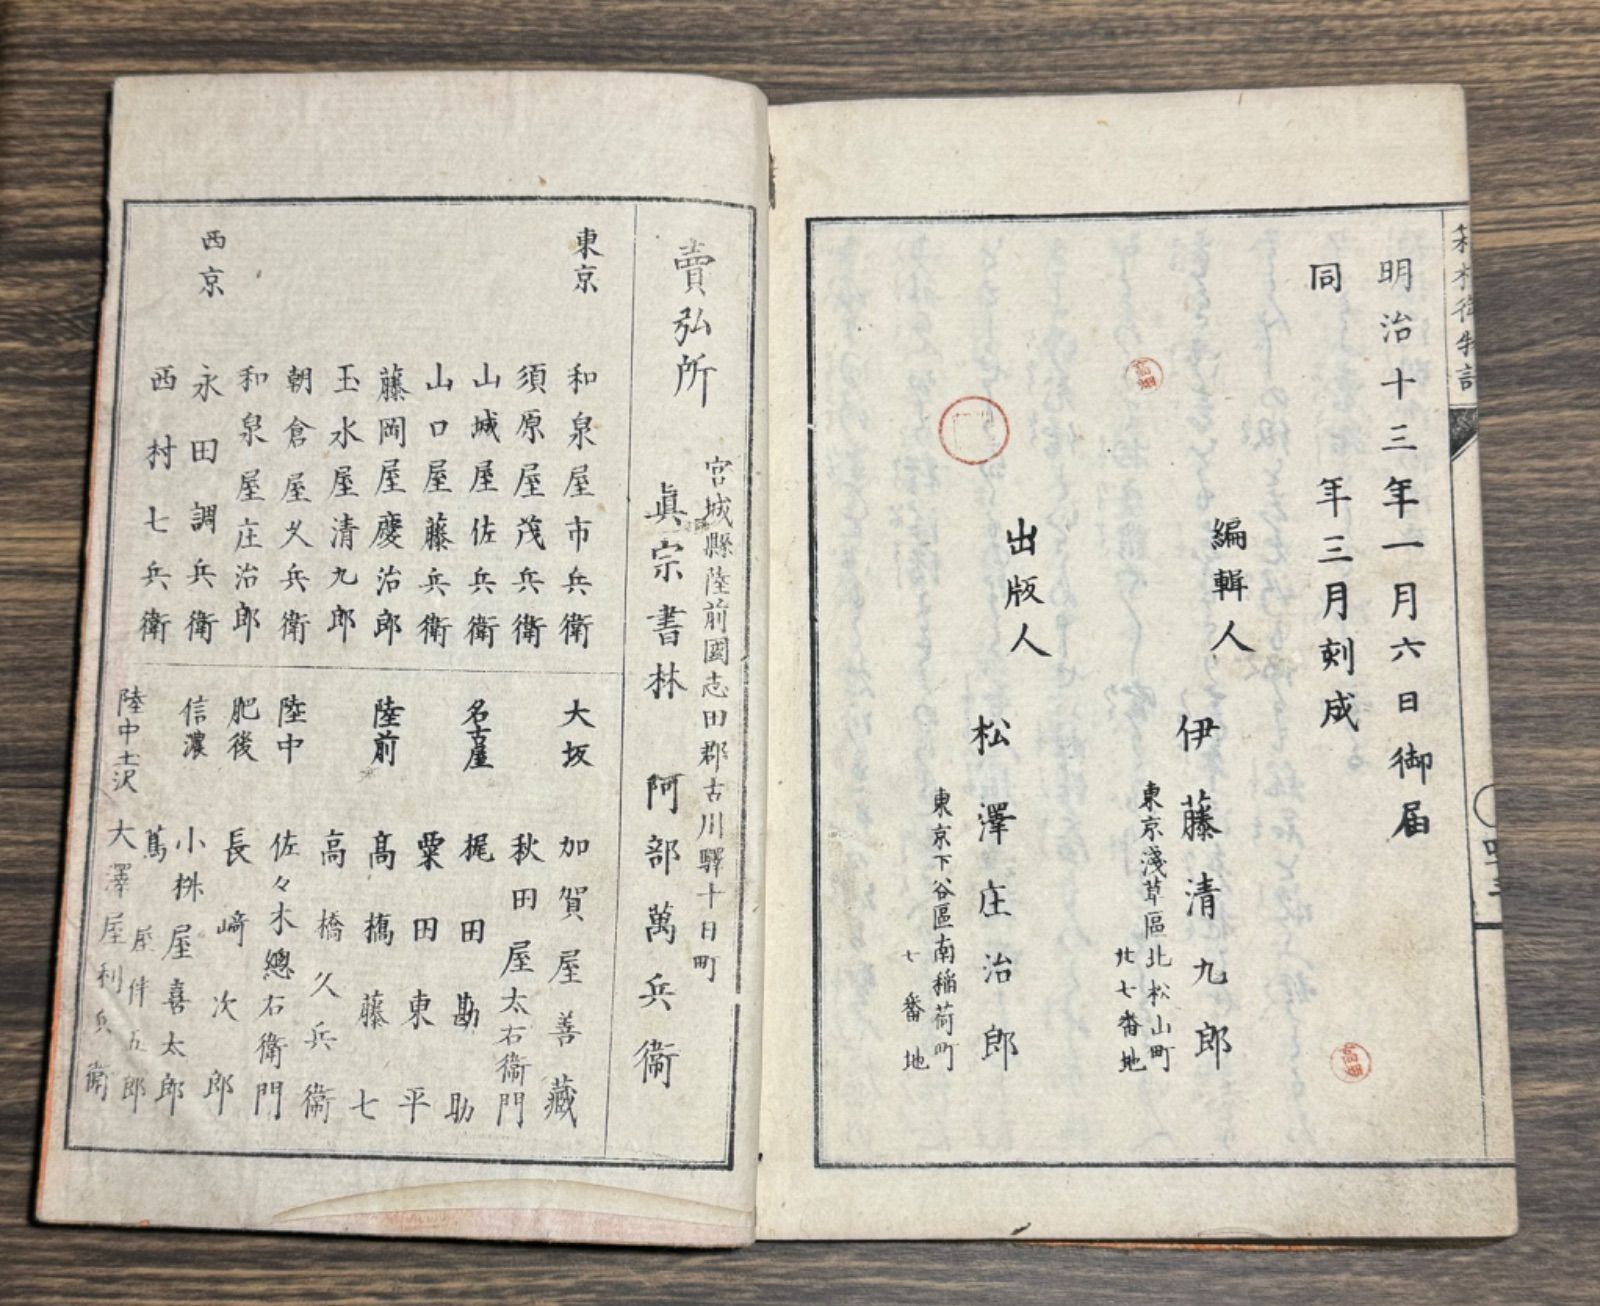 明治十三年一月六日御届
同年三月刻成
編輯人
伊藤清九郎
東京淺草區北松山町
廿七番地
出版人
松澤庄治郎
東京下谷區南稲荷町
七番地
賣弘所
宮城縣陸前國志田郡古川驛十日町
眞宗書林 阿部萬兵衛
東京
和泉屋市兵衛
須原屋茂兵衛
山城屋佐兵衛
山口屋藤兵衛
藤岡屋慶治郎
玉水屋清九郎
朝倉屋久兵衛
和泉屋庄治郎
西京
永田調兵衛
西村七兵衛
大坂 加賀屋善藏
秋田屋太右衛門
名古屋 梶田勘助
粟田東平
陸前 高橋藤七
高橋久兵衛
陸中 佐々木總右衛門
肥後 長﨑次郎
信濃 小桝屋喜太郎
蔦屋伴五郎
陸中土沢 大澤屋利兵衛